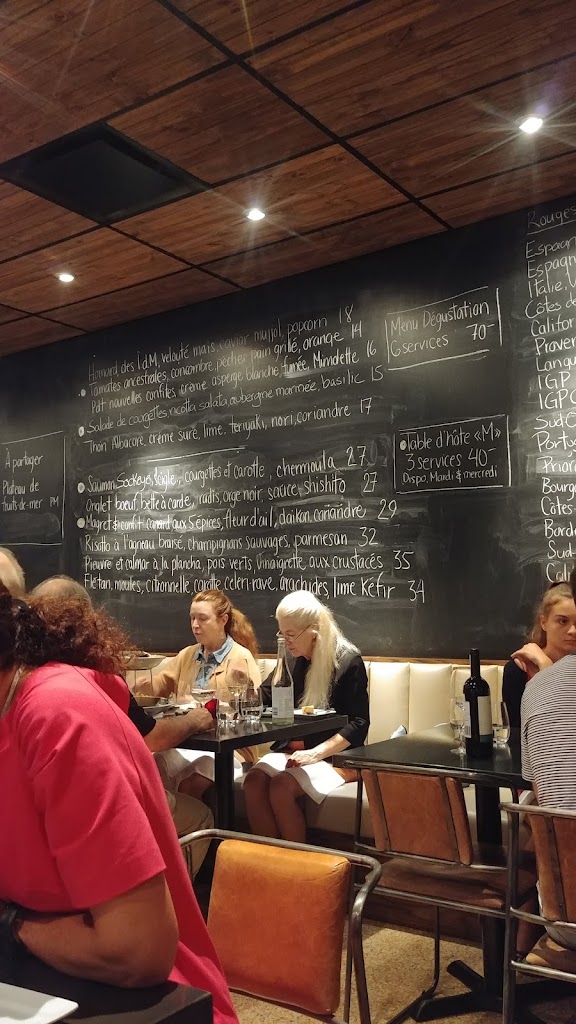 Homard des I.d.M, velouté maïs, caviar mujjol, popcorn 18
Tomates ancestrales, concombre, pêcher pain grillé, orange 14
Pdt nouvelles confites, crème asperge blanche fumée, Mimolette 16
Salade de courgettes, ricotta salata, aubergine marinée, basilic 15
Thon Albacore, crème sure, lime, teriyaki, nori, coriandre 17
Saumon Sockeye, seigle, courgettes et carotte, chermoula 27
Onglet boeuf, bette à carde, radis, orge noir, sauce shishito 27
Magret & confit canard aux 5 épices, fleur d'ail, daikon, coriandre 29
Risotto à l'agneau braisé, champignons sauvages, parmesan 32
Pieuvre et calmar à la plancha, pois verts, vinaigrette aux crustacés 35
Flétan, moules, citronnelle, carotte, céleri-rave, arachides, lime kéfir 34
À partager
Plateau de
fruits-de-mer PM
Menu Dégustation
6 services 70-
Table d'hôte «M»
3 services 40-
Dispo, Mardi & mercredi
Rouges
Espagn
Espagn
Italie, V
Côtes de
Califor
Proven
Langu
IGP
IGP C
Sud-O
Portu
Prior
Bourg
Côtes
Borde
Sud-
Cali